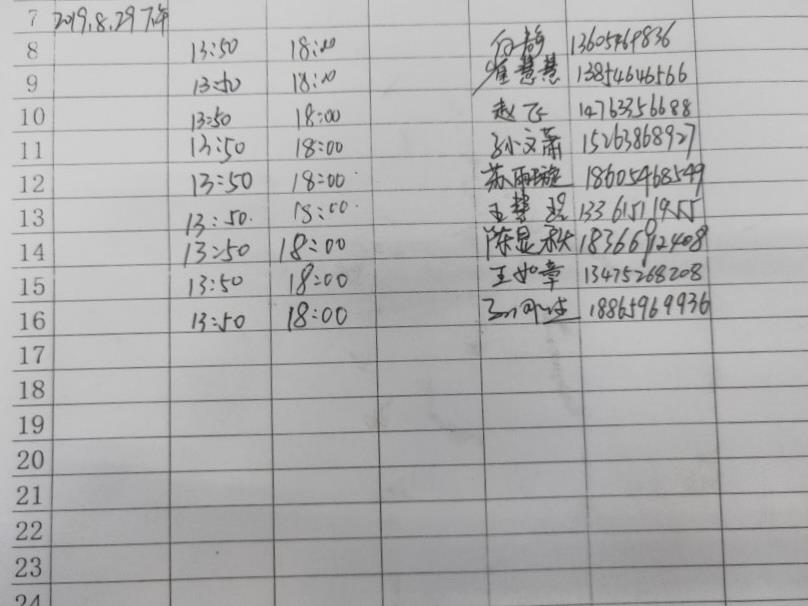 7 2019.8.29下午
8 13:50 18:00 白静 13605469836
9 13:50 18:00 崔慧慧 13854646566
10 13:50 18:00 赵飞 14763356688
11 13:50 18:00 孙文萧 15263868927
12 13:50 18:00 苏雨璇 18605468549
13 13:50. 18:00. 王慧 13361511955
14 13:50 18:00 陈显秋 18366912408
15 13:50 18:00 王如章 13475268208
16 13:50 18:00 18865969936
17
18
19
20
21
22
23
24